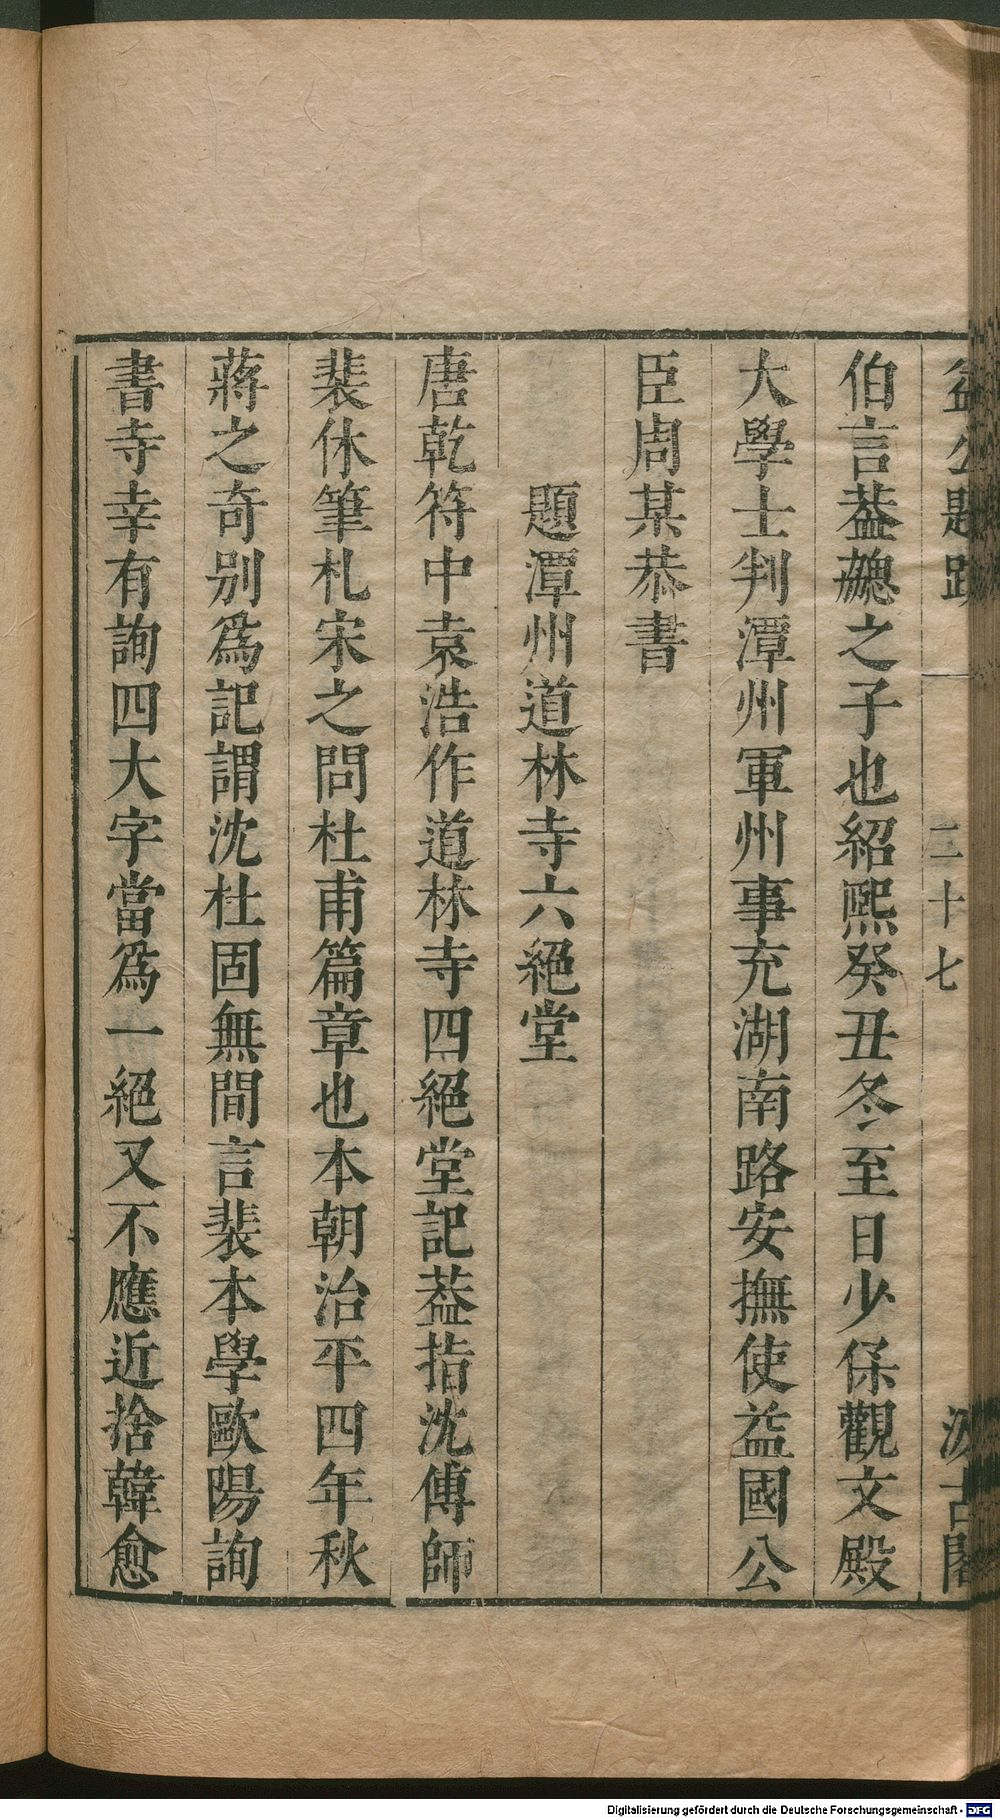 益公題跋 一 二十七 汲古閣
伯言葢𧬊之子也紹熙癸丑冬至日少保觀文殿
大學士判潭州軍州事充湖南路安撫使益國公
臣周某恭書
題潭州道林寺六絕堂
唐乾符中袁浩作道林寺四絕堂記葢指沈傅師
裴休筆札宋之問杜甫篇章也本朝治平四年秋
蔣之奇別爲記謂沈杜固無間言裴本學歐陽詢
書寺幸有詢四大字當爲一絕又不應近捨韓愈
Digitalisierung gefördert durch die Deutsche Forschungsgemeinschaft - DFG